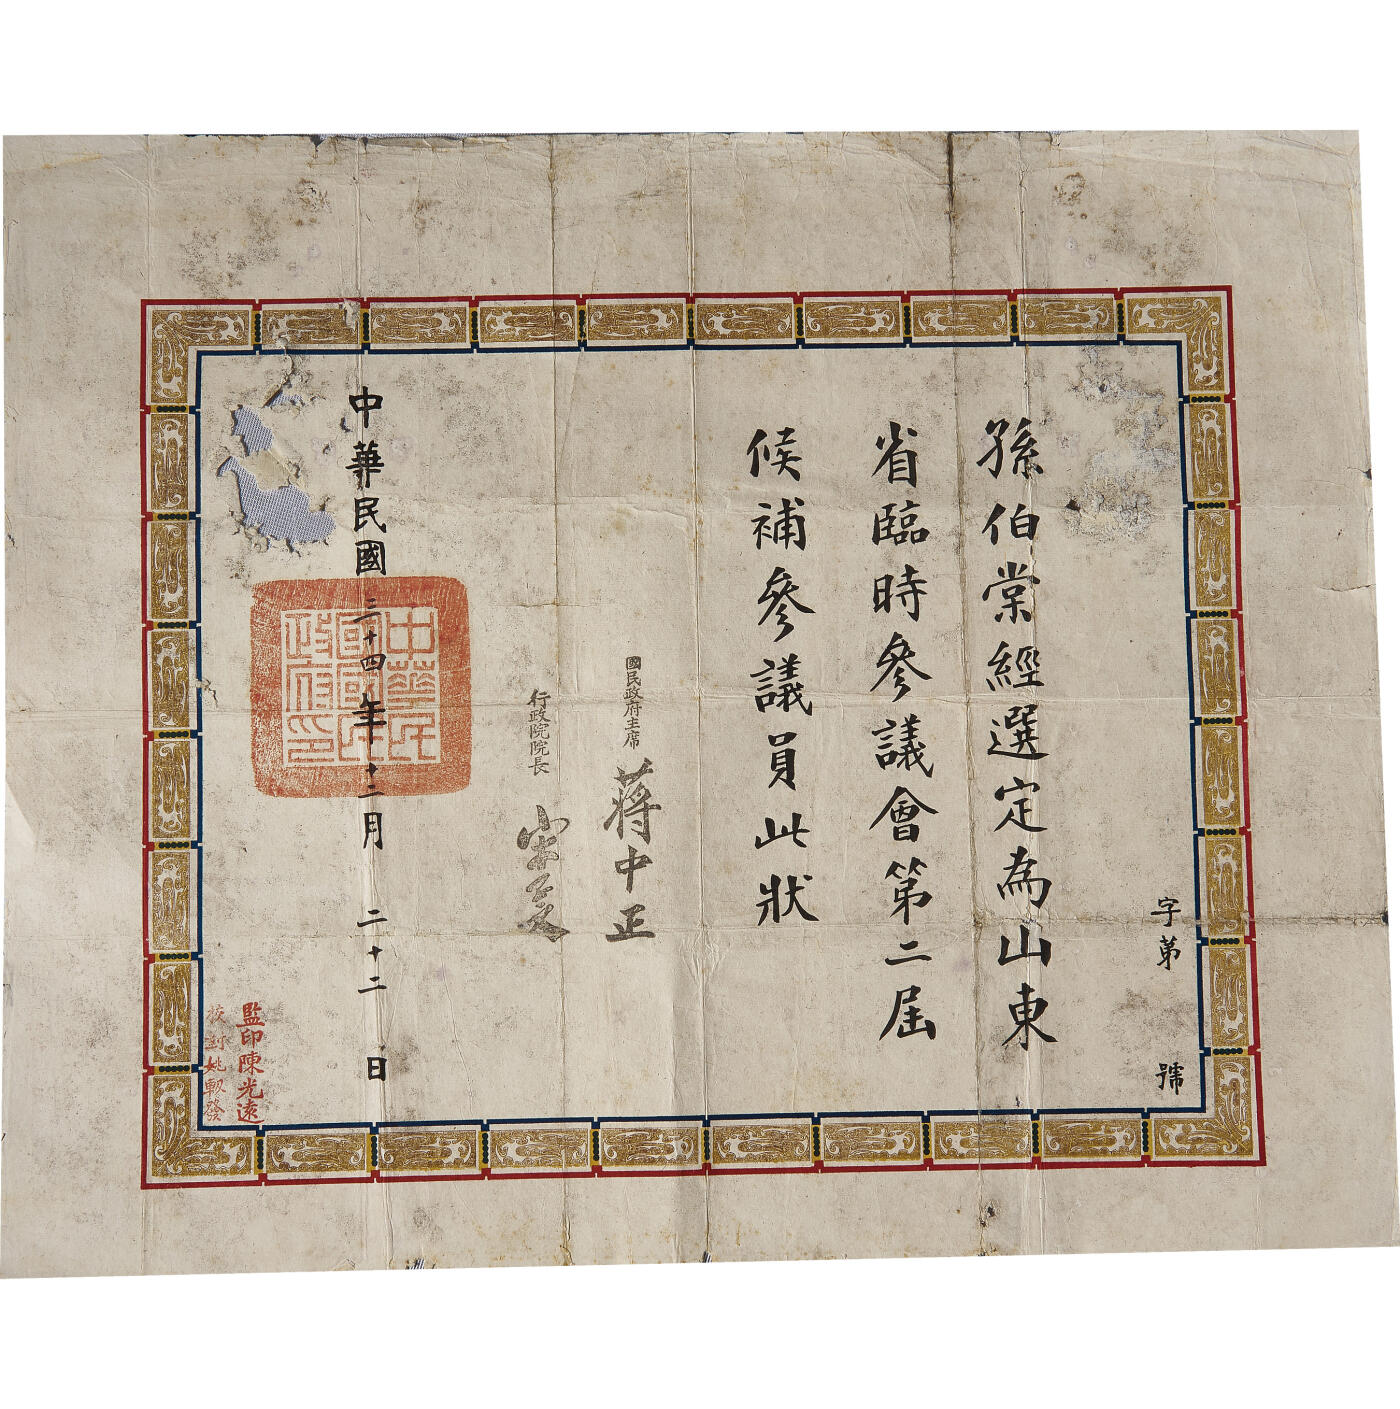 字第　號
孫伯棠經選定為山東
省臨時參議會第二屆
候補參議員此狀
國民政府主席　蔣中正
行政院院長　宋子文
中華民國三十四年十二月二十二日
中華民國國民政府印
監印陳光遠
校對姚軔發